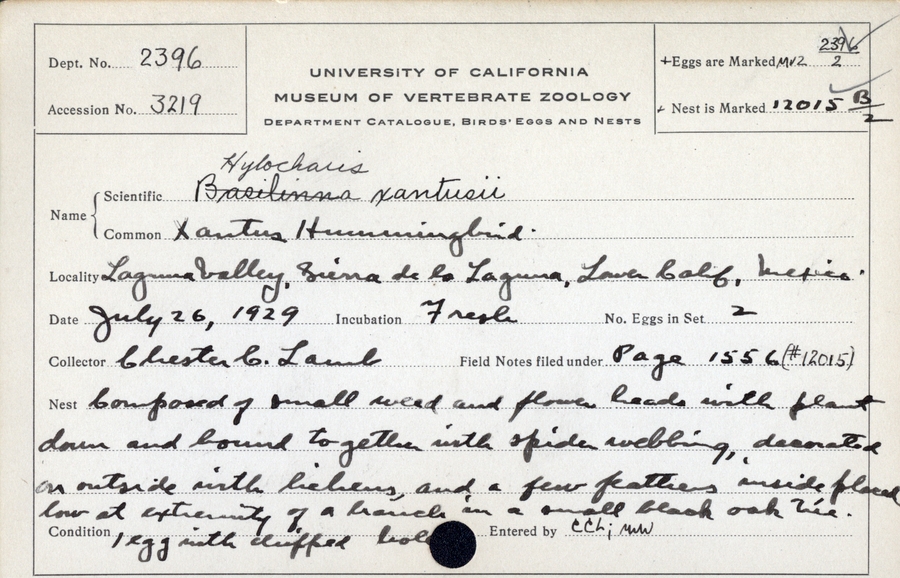 Dept. No. 2396
Accession No. 3219
UNIVERSITY OF CALIFORNIA
MUSEUM OF VERTEBRATE ZOOLOGY
DEPARTMENT CATALOGUE, BIRDS' EGGS AND NESTS
+Eggs are Marked MVZ 2396/2
Nest is Marked 12015 B/2
Hylocharis
Name { Scientific Basilinna xantusii
Common Xantus Hummingbird.
Locality Laguna Valley, Sierra de la Laguna, Lower Calif, Mexico.
Date July 26, 1929 Incubation Fresh No. Eggs in Set 2
Collector Chester C. Lamb Field Notes filed under Page 1556 (#12015)
Nest Composed of small weed and flower heads with plant
down and bound together with spider webbing, decorated
on outside with lichens, and a few feathers inside placed
low at extremity of a branch in a small black oak tree.
Condition 1 egg with chipped Entered by CCL;